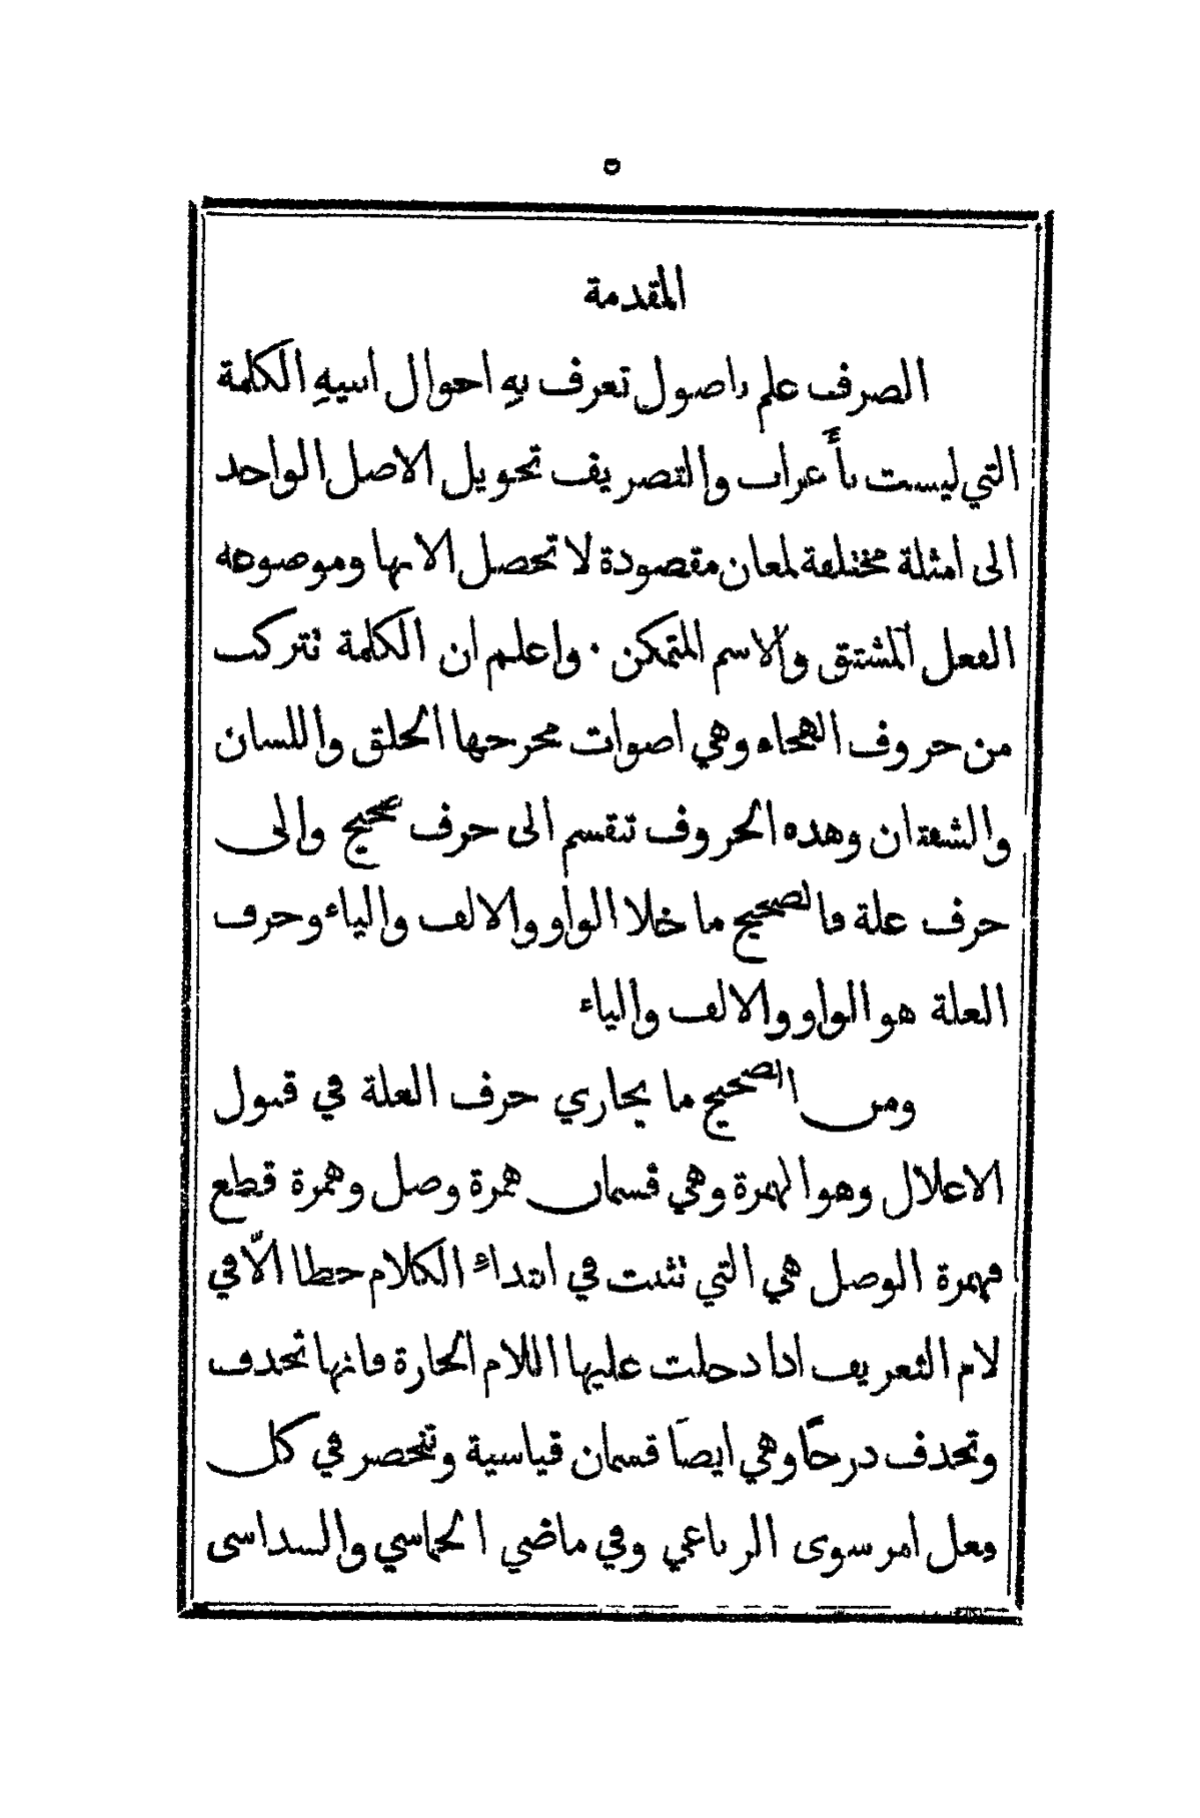 ٥
المقدمة
الصرف علم باصول تعرف بهِ احوال ابنيهِ الكلمة
التي ليست بأَعراب والتصريف تحويل الاصل الواحد
الى امثلة مختلفة لمعان مقصودة لا تحصل الا بها وموضوعه
الفعل المشتق والاسم المتمكن ٠ واعلم ان الكلمة تتركب
من حروف الهجاء وهي اصوات مخرجها الحلق واللسان
والشفتان وهذه الحروف تنقسم الى حرف صحيح والى
حرف علة فالصحيح ما خلا الواو والالف والياء وحرف
العلة هو الواو والالف والياء
ومن الصحيح ما يجاري حرف العلة في قبول
الاعلال وهو الهمزة وهي قسمان همزة وصل وهمزة قطع
فهمزة الوصل هي التي تثبت في ابتداءِ الكلام خطا الّا في
لام التعريف اذا دخلت عليها اللام الجارة فانها تحذف
وتحذف درجًا وهي ايضًا قسمان قياسية وتنحصر في كل
فعل امر سوى الرباعي وفي ماضي الخماسي والسداسى